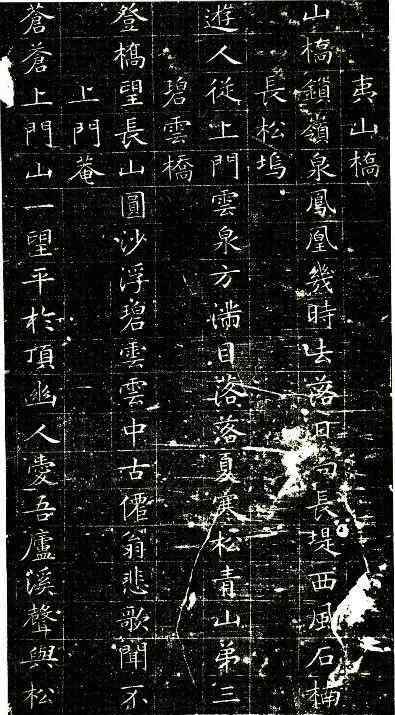 夷山橋
山橋鎖嶺泉鳳凰幾時去落日 長堤西風石楠
長松塢
遊人從上門雲泉方滿目落落夏寒松青山弟三
碧雲橋
登橋望長山圓沙浮碧雲雲中古僊翁悲歌聞不
上門菴
蒼蒼上門山一望平於頂幽人愛吾廬溪聲與松